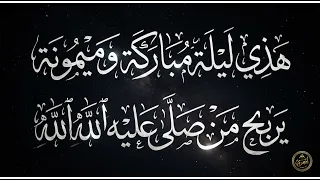 هَذِي لَيْلَة مُبَارَكَة وَمَيْمُونَة
يَربَح مَن صَلَّى عَلَيه اَللهُ اَللهُ